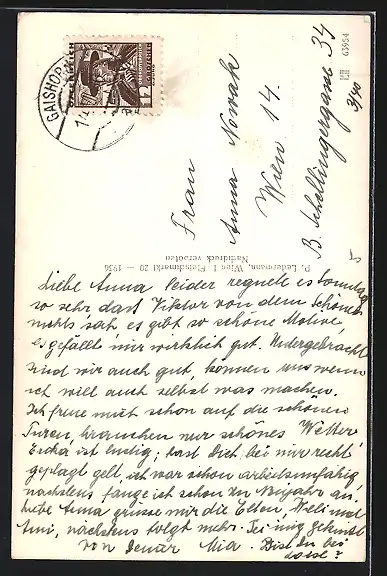 GAISHORN
12
63954
Frau
Anna Nowak
Wien 14.
B. Schellingergasse 34
3/20
P. Ledermann, Wien I Fleischmarkt 20 — 1936
Nachdruck verboten
Liebe Anna leider regnete es Sonntag
so sehr dass Viktor von dem Schönen
nichts sah, es gibt so schöne Motive,
es gefällt mir wirklich gut. Untergebracht
sind wir auch gut, können uns wenn
ich will auch selbst was machen.
Ich freue mich schon auf die schönen
Turen, brauchen nur schönes Wetter
Erika ist lustig; hast Dich bei mir recht
geplagt gelt, ich war schon arbeitsunfähig
nächstens fange ich schon zu Neujahr an.
Liebe Anna grüsse mir die Elten, Weli und
Ami, nächstens folgt mehr.
von Deiner Mia. Bist Du bei